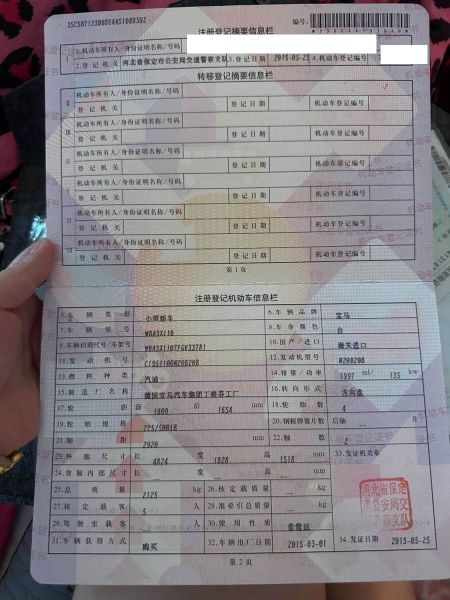 注册登记摘要信息栏
编号：
1.机动车所有人/身份证明名称/号码
2.登记机关 河北省保定市公安局交通警察支队 3.登记日期 2015-05-25 4.机动车登记编号
转移登记摘要信息栏
机动车所有人/身份证明名称/号码
登记机关 登记日期 机动车登记编号
机动车所有人/身份证明名称/号码
登记机关 登记日期 机动车登记编号
机动车所有人/身份证明名称/号码
登记机关 登记日期 机动车登记编号
机动车所有人/身份证明名称/号码
登记机关 登记日期 机动车登记编号
机动车所有人/身份证明名称/号码
登记机关 登记日期 机动车登记编号
机动车所有人/身份证明名称/号码
登记机关 登记日期 机动车登记编号
第1页
注册登记机动车信息栏
5.车辆类型 小型轿车 6.车辆品牌 宝马
7.车辆型号 WBA3X110 8.车身颜色 白
9.车辆识别代号/车架号 WBA3X1107FGV33781 10.国产/进口 海关进口
11.发动机号 C1951108N20B20B 12.发动机型号 N20B20B
13.燃料种类 汽油 14.排量/功率 1997 ml/ 135 kw
15.制造厂名称 德国宝马汽车集团丁格芬工厂 16.转向形式 方向盘
17.轮距 前 1609 后 1654 mm 18.轮胎数 4
19.轮胎规格 225/50R18 20.钢板弹簧片数 后轴 -- 片
21.轴距 2920 mm 22.轴数 2
23.外廓尺寸 长 4824 宽 1828 高 1518 mm 33.发证机关章
24.货厢内部尺寸 长 -- 宽 -- 高 -- mm
25.总质量 2125 kg 26.核定载质量 -- kg
27.核定载客 5 人 28.准牵引总质量 -- kg
29.驾驶室载客 -- 人 30.使用性质 非营运
河北省保定市公安局交通警察支队
31.车辆获得方式 购买 32.车辆出厂日期 2015-03-01 34.发证日期 2015-05-25
第2页